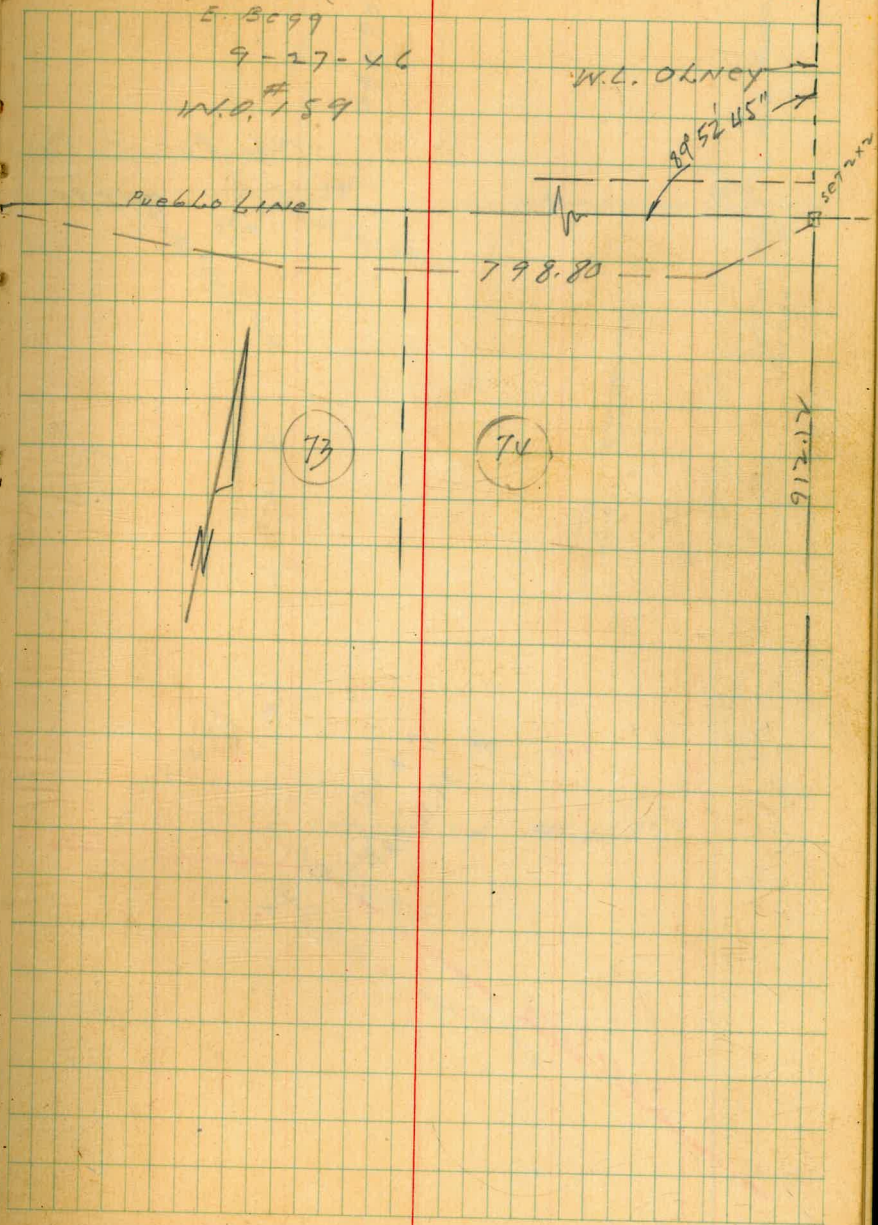 E. Begg
9-27-46
W.O. #159
W.L. OLNEY
89° 52' 45"
SET 2x2
PUEBLO LINE
798.80
73
74
912.12
N